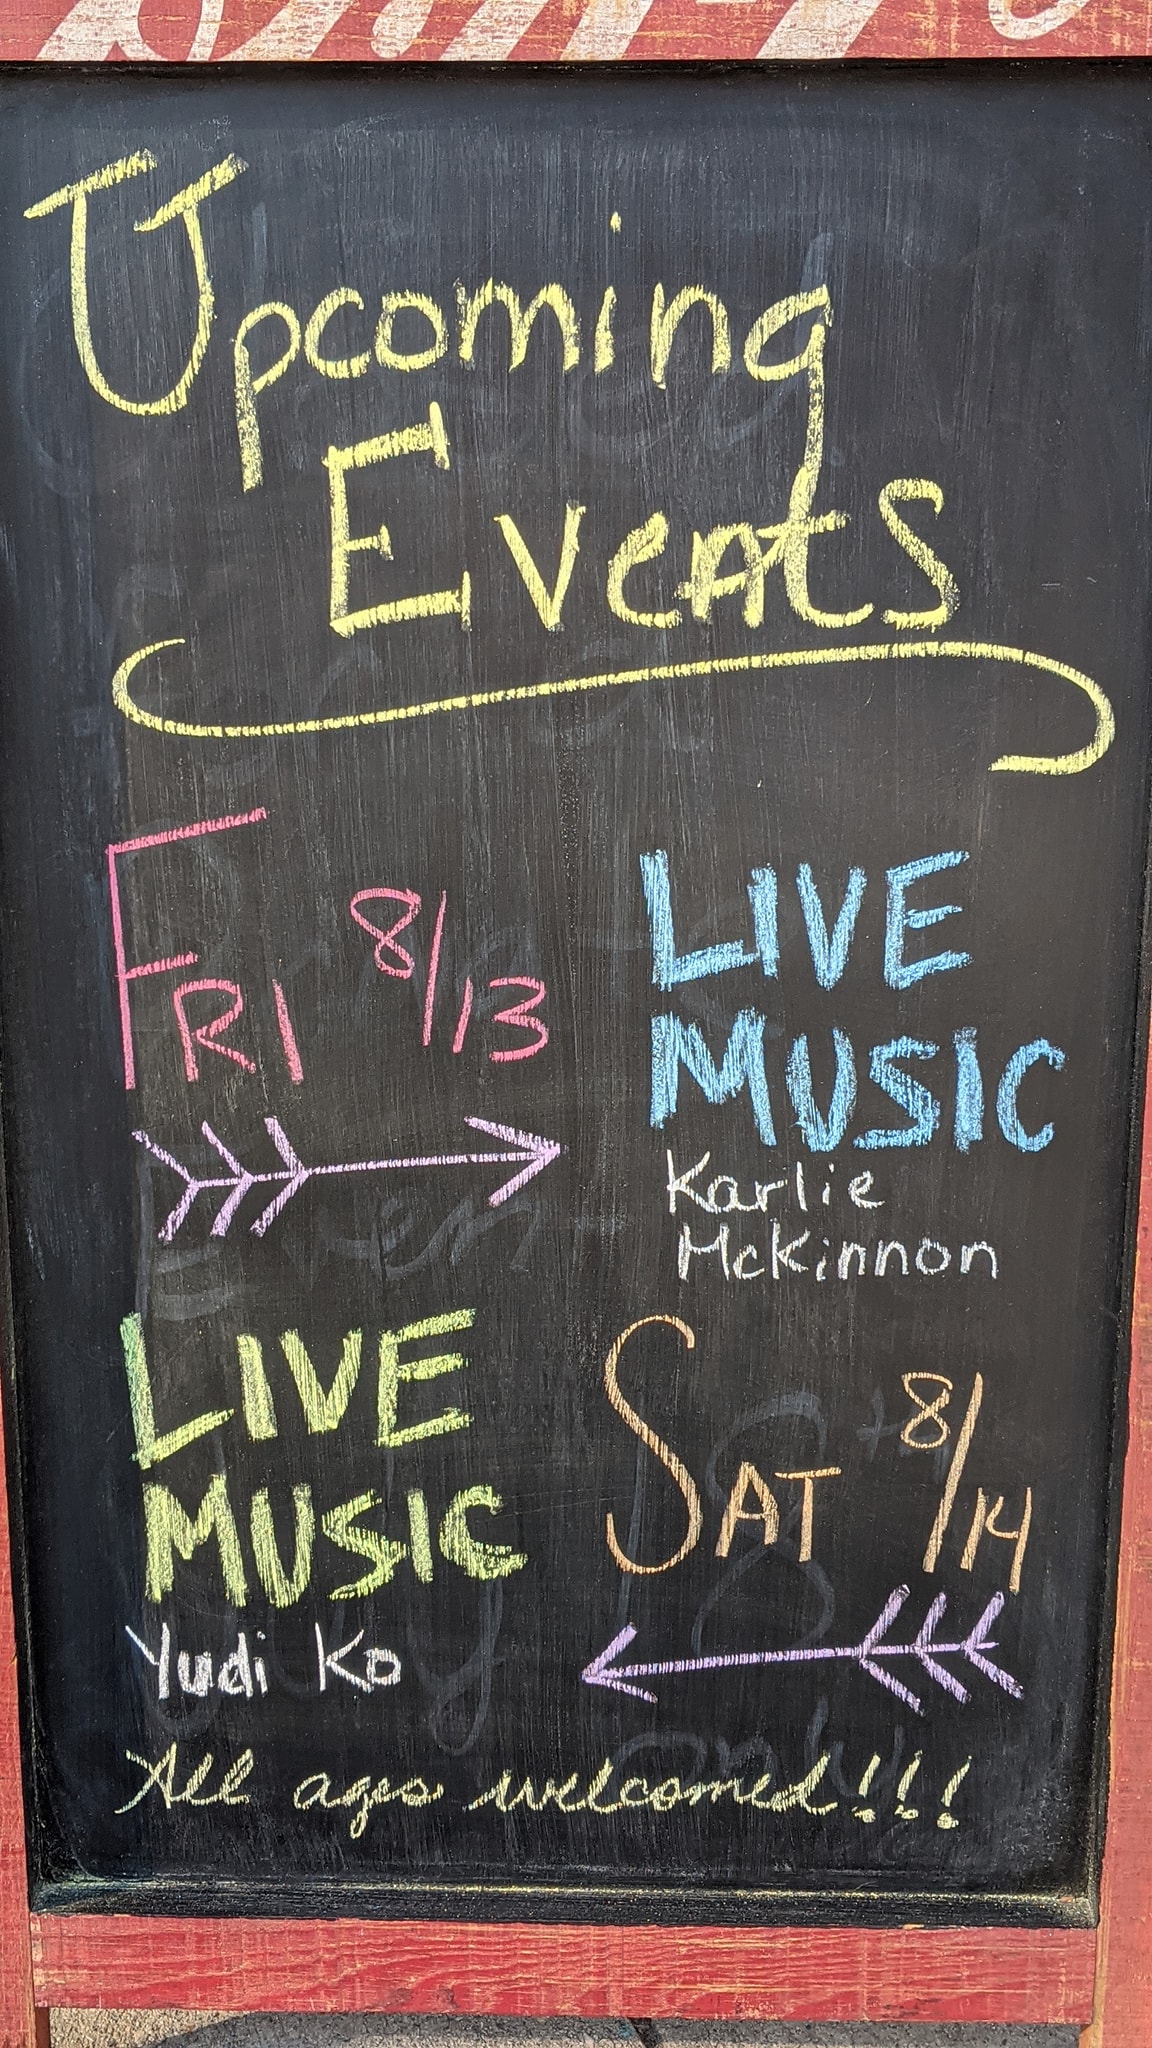 Upcoming
Events
FRI 8/13
LIVE
MUSIC
Karlie
McKinnon
LIVE
MUSIC
Yudi Ko
SAT 8/14
All ages welcomed!!!